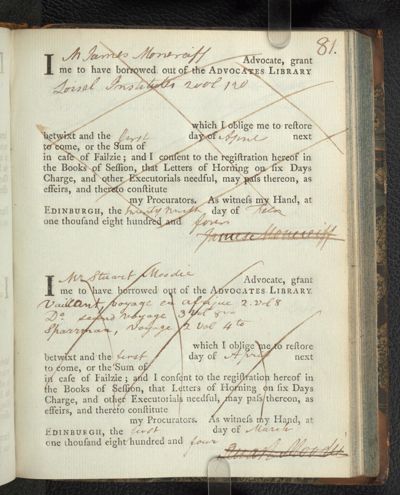 81.
I Mr James Moncreiff Advocate, grant
me to have borrowed out of the ADVOCATES LIBRARY
Institutes 2 vol 120
which I oblige me to reſtore
betwixt and the first day of April next
to come, or the Sum of
in caſe of Failzie; and I conſent to the regiſtration hereof in
the Books of Seſſion, that Letters of Horning on ſix Days
Charge, and other Executorials needful, may paſs thereon, as
effeirs, and thereto conſtitute
my Procurators. As witneſs my Hand, at
EDINBURGH, the twenty ninth day of Febr
one thouſand eight hundred and four
James Moncreiff
I Mr Stuart Moodie Advocate, grant
me to have borrowed out of the ADVOCATES LIBRARY
Vaillant, voyage en afrique 2 vol 8
Do second voyage 3 vol 8vo
Sparrman, Voyage 2 vol 4to
which I oblige me to reſtore
betwixt and the first day of April next
to come, or the Sum of
in caſe of Failzie; and I conſent to the regiſtration hereof in
the Books of Seſſion, that Letters of Horning on ſix Days
Charge, and other Executorials needful, may paſs thereon, as
effeirs, and thereto conſtitute
my Procurators. As witneſs my Hand, at
EDINBURGH, the first day of March
one thouſand eight hundred and four
Stuart Moodie